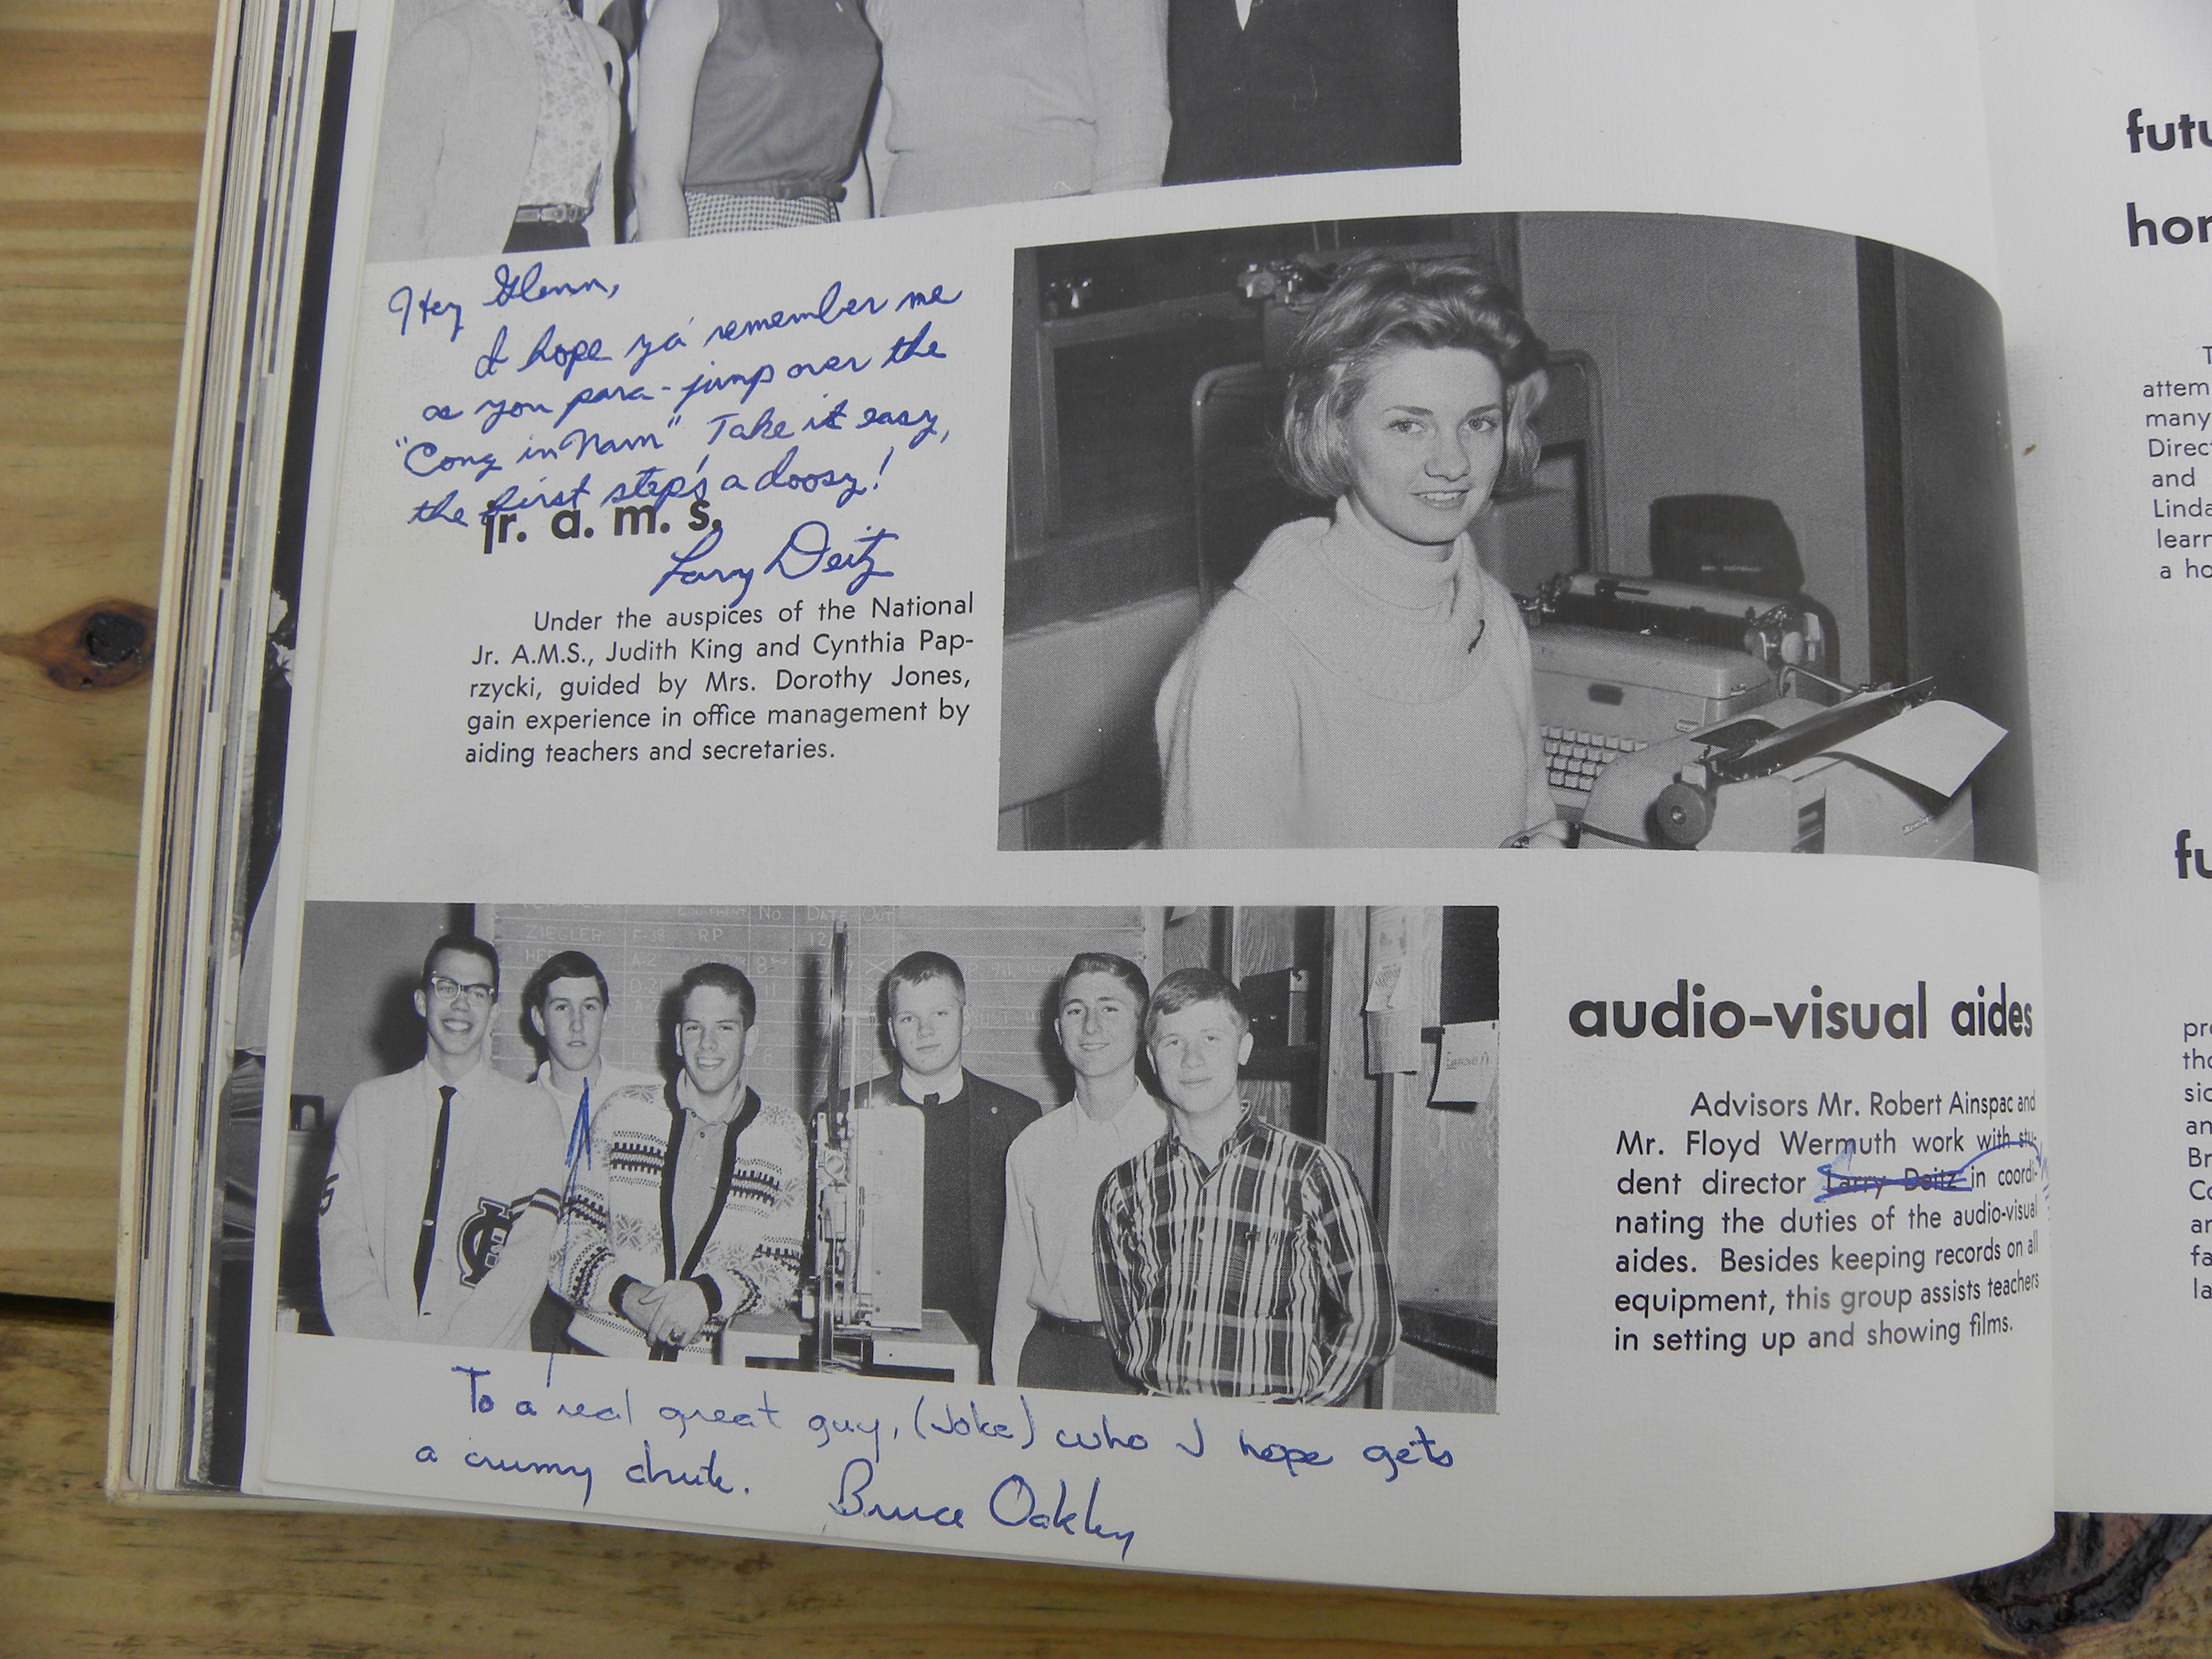 Hey Glenn,
I hope ya' remember me
as you para-jump over the
"Cong in Nam" Take it easy,
the first step's a doosy!
Larry Deitz
jr. a. m. s.
Under the auspices of the National
Jr. A.M.S., Judith King and Cynthia Pap-
rzycki, guided by Mrs. Dorothy Jones,
gain experience in office management by
aiding teachers and secretaries.
No. DATE OUT
ZIEGLER F-38 RP 12
audio-visual aides
Advisors Mr. Robert Ainspac and
Mr. Floyd Wermuth work with stu-
dent director Larry Deitz in coordi-
nating the duties of the audio-visual
aides. Besides keeping records on all
equipment, this group assists teachers
in setting up and showing films.
To a real great guy, (Joke) who I hope gets
a crumy chute. Bruce Oakley
futu
hor
T
attem
many
Direc
and
Linda
learn
a ho
fu
pr
tho
sic
an
Br
Co
ar
fa
la